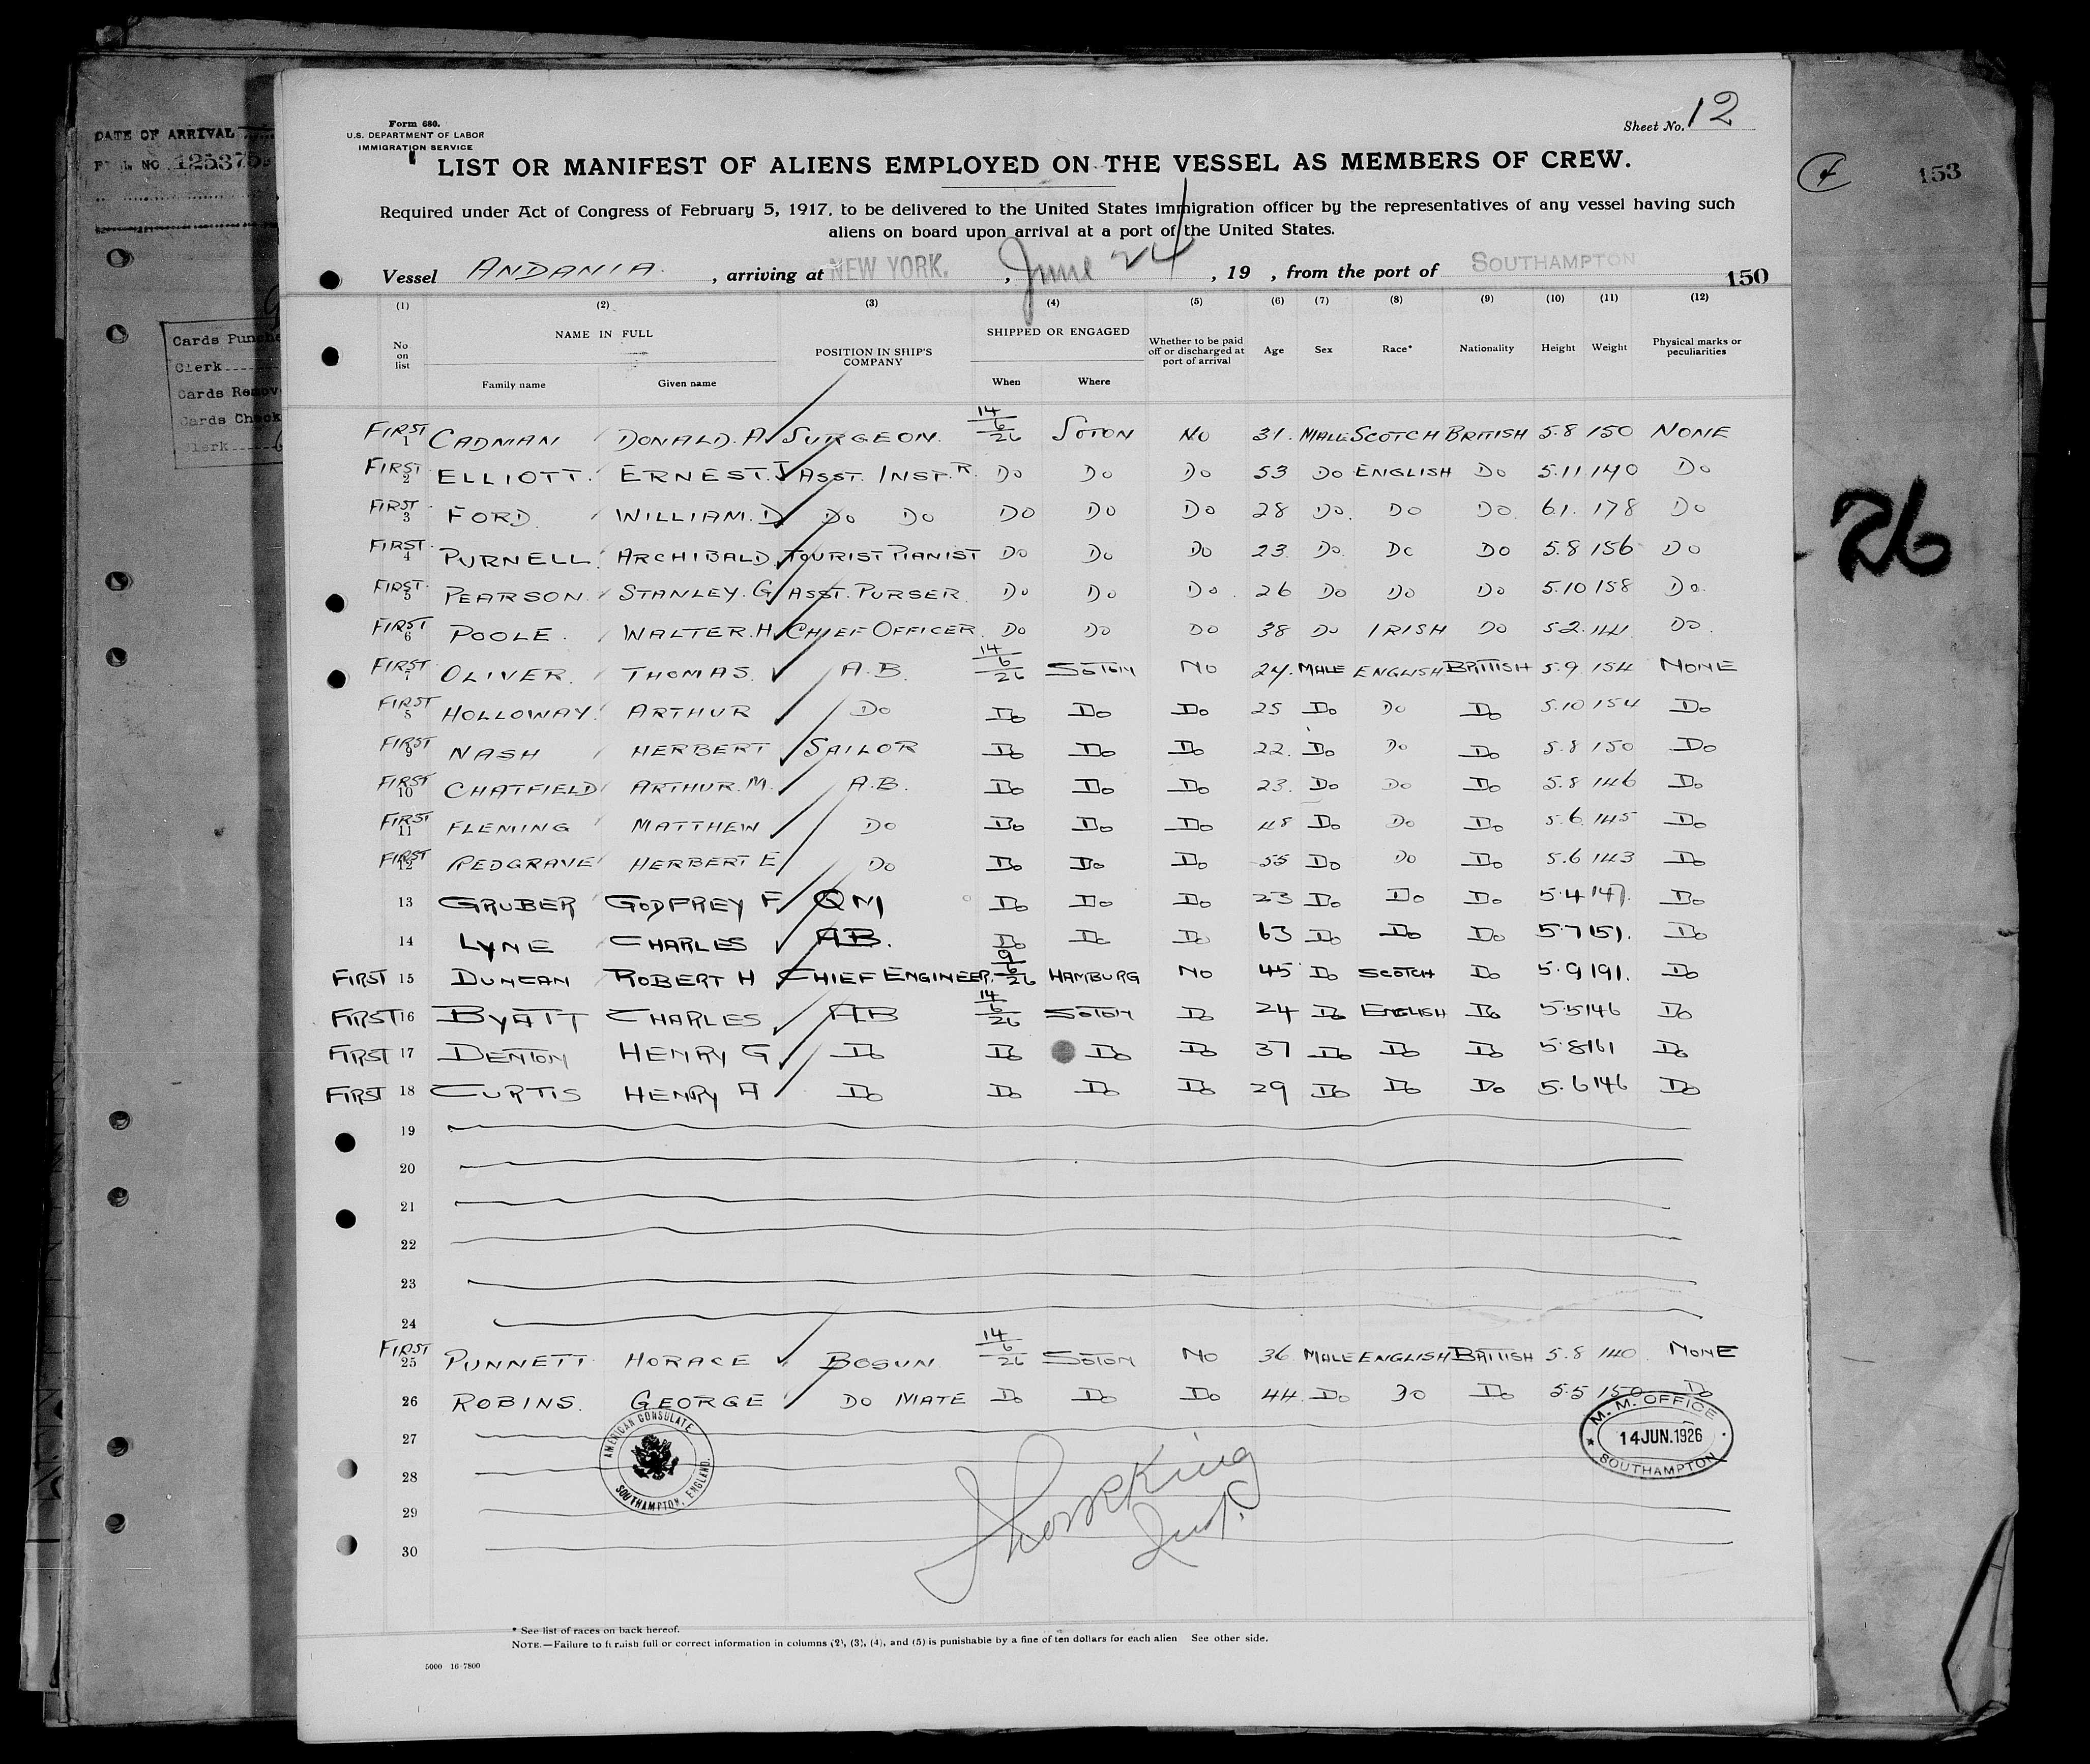 DATE OF ARRIVAL
Cards
Clerk
Cards
Cards Check
Clerk
Form 680.
U.S. DEPARTMENT OF LABOR
IMMIGRATION SERVICE
Sheet No. 12
LIST OR MANIFEST OF ALIENS EMPLOYED ON THE VESSEL AS MEMBERS OF CREW.
153
Required under Act of Congress of February 5, 1917, to be delivered to the United States immigration officer by the representatives of any vessel having such
aliens on board upon arrival at a port of the United States.
Vessel ANDANIA , arriving at NEW YORK. , June 24 , 19 , from the port of SOUTHAMPTON 150
(1) (2) (3) (4) (5) (6) (7) (8) (9) (10) (11) (12)
No on list NAME IN FULL Family name Given name POSITION IN SHIP'S COMPANY SHIPPED OR ENGAGED When Where Whether to be paid off or discharged at port of arrival Age Sex Race* Nationality Height Weight Physical marks or peculiarities
FIRST 1 CADMAN DONALD. A SURGEON. 14/6/26 SOTON NO 31. MALE SCOTCH BRITISH 5.8 150 NONE
FIRST 2 ELLIOTT. ERNEST. J ASST. INSPR. DO DO DO 53 DO ENGLISH DO 5.11. 140 DO
FIRST 3 FORD. WILLIAM. D DO DO DO DO DO 28 DO. DO DO. 6.1. 178 DO
FIRST 4 PURNELL. ARCHIBALD. TOURIST PIANIST DO DO DO 23. DO. DO DO 5.8 156 DO
FIRST 5 PEARSON. STANLEY. G ASST. PURSER. DO DO DO. 26 DO DO DO 5.10 158 DO.
FIRST 6 POOLE. WALTER. H. CHIEF OFFICER. DO DO DO 38 DO IRISH DO 5.2. 141. DO.
FIRST 7 OLIVER. THOMAS. A.B. 14/6/26 SOTON NO 24. MALE ENGLISH BRITISH 5.9. 154 NONE
FIRST 8 HOLLOWAY. ARTHUR DO DO DO DO 25 DO DO DO 5.10 154 DO
FIRST 9 NASH HERBERT SAILOR DO DO DO 22. DO DO DO 5.8 150 DO
FIRST 10 CHATFIELD ARTHUR. M. A.B. DO DO DO 23. DO DO DO 5.8 146 DO
FIRST 11 FLEMING MATTHEW DO DO DO DO 48 DO DO DO 5.6. 145 DO
FIRST 12 REDGRAVE HERBERT E DO DO DO DO 55 DO DO DO 5.6 143 DO
13 GRUBER GODFREY F QM DO DO DO 23 DO DO DO 5.4 147. DO
14 LYNE CHARLES AB. DO DO DO 63 DO DO DO 5.7 151. DO
FIRST 15 DUNCAN ROBERT H CHIEF ENGINEER. 9/6/26 HAMBURG NO 45 DO SCOTCH DO 5.9 191. DO
FIRST 16 BYATT CHARLES AB 14/6/26 SOTON DO 24 DO ENGLISH DO 5.5 146 DO
FIRST 17 DENTON HENRY G DO DO DO DO 37 DO DO DO 5.8 161 DO
FIRST 18 CURTIS HENRY A DO DO DO DO 29 DO DO DO 5.6 146 DO
19
20
21
22
23
24
FIRST 25 PUNNETT HORACE BOSUN 14/6/26 SOTON NO 36 MALE ENGLISH BRITISH 5.8 140 NONE
26 ROBINS. GEORGE DO MATE DO DO DO 44 DO DO DO 5.5 150 DO
27
28
29
30
26
AMERICAN CONSULATE
SOUTHAMPTON, ENGLAND.
M. M. OFFICE
14 JUN. 1926
SOUTHAMPTON
* See list of races on back hereof.
NOTE.—Failure to furnish full or correct information in columns (2), (3), (4), and (5) is punishable by a fine of ten dollars for each alien See other side.
5000 16-7800